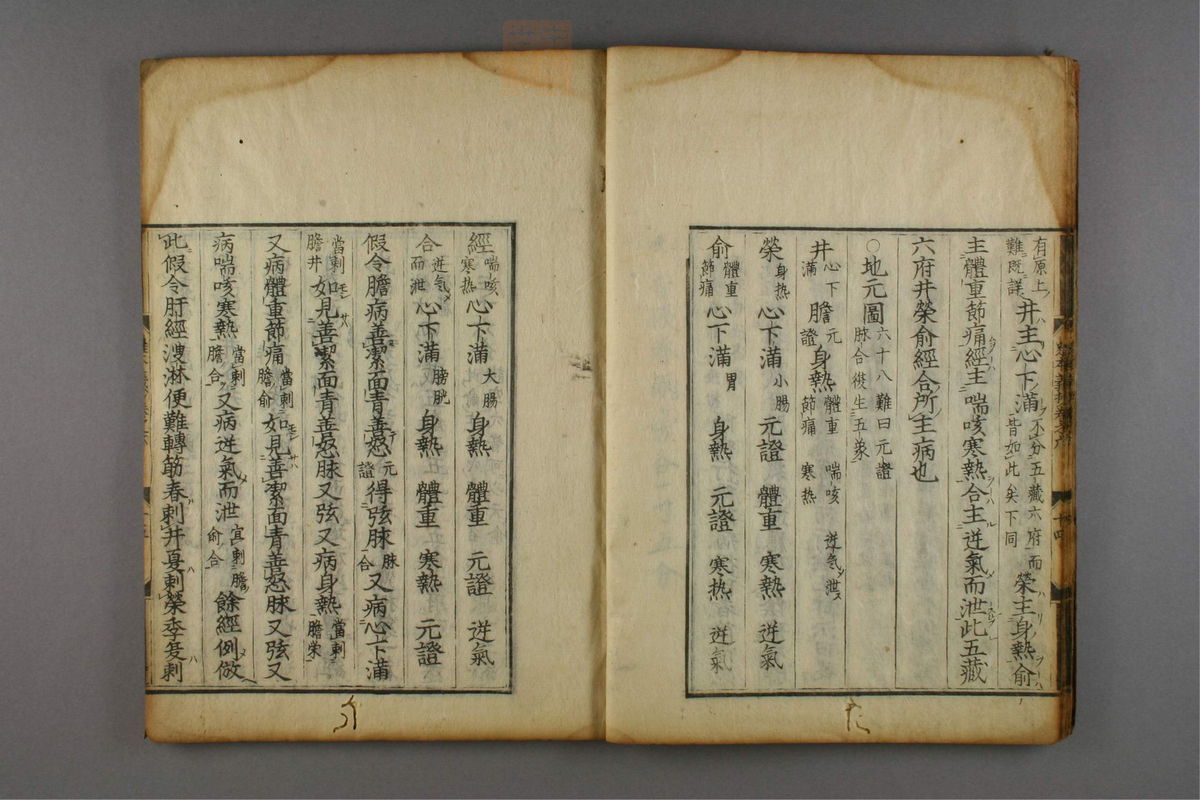 有原上難既詳井主心下滿不分五藏六府而皆如此矣下同榮主身熱俞
主體重節痛經主喘咳寒熱合主逆氣而泄此五藏
六府井榮俞經合所主病也
〇地元圖六十八難曰元證脉合後生五象
井心下滿 膽元證 身熱 體重節痛 喘咳寒熱 逆氣泄
榮身热 心下滿小腸 元證 體重 寒熱 逆氣
俞體重節痛 心下滿胃 身熱 元證 寒热 逆氣
經喘咳寒熱 心下滿大腸 身熱 體重 元證 逆氣
合逆氣而泄 心下滿膀胱 身熱 體重 寒熱 元證
假令膽病善潔面青善怒元證得弦脉脉合又病心下滿
當刺膽井如見善潔面青善怒脉又弦又病身熱當刺膽榮
又病體重節痛當刺膽俞如見善潔面青善怒脉又弦又
病喘咳寒熱當刺膽合又病逆氣而泄宜刺膽俞合餘經例倣
此假令肝經溲淋便難轉筋春刺井夏刺榮季夏刺